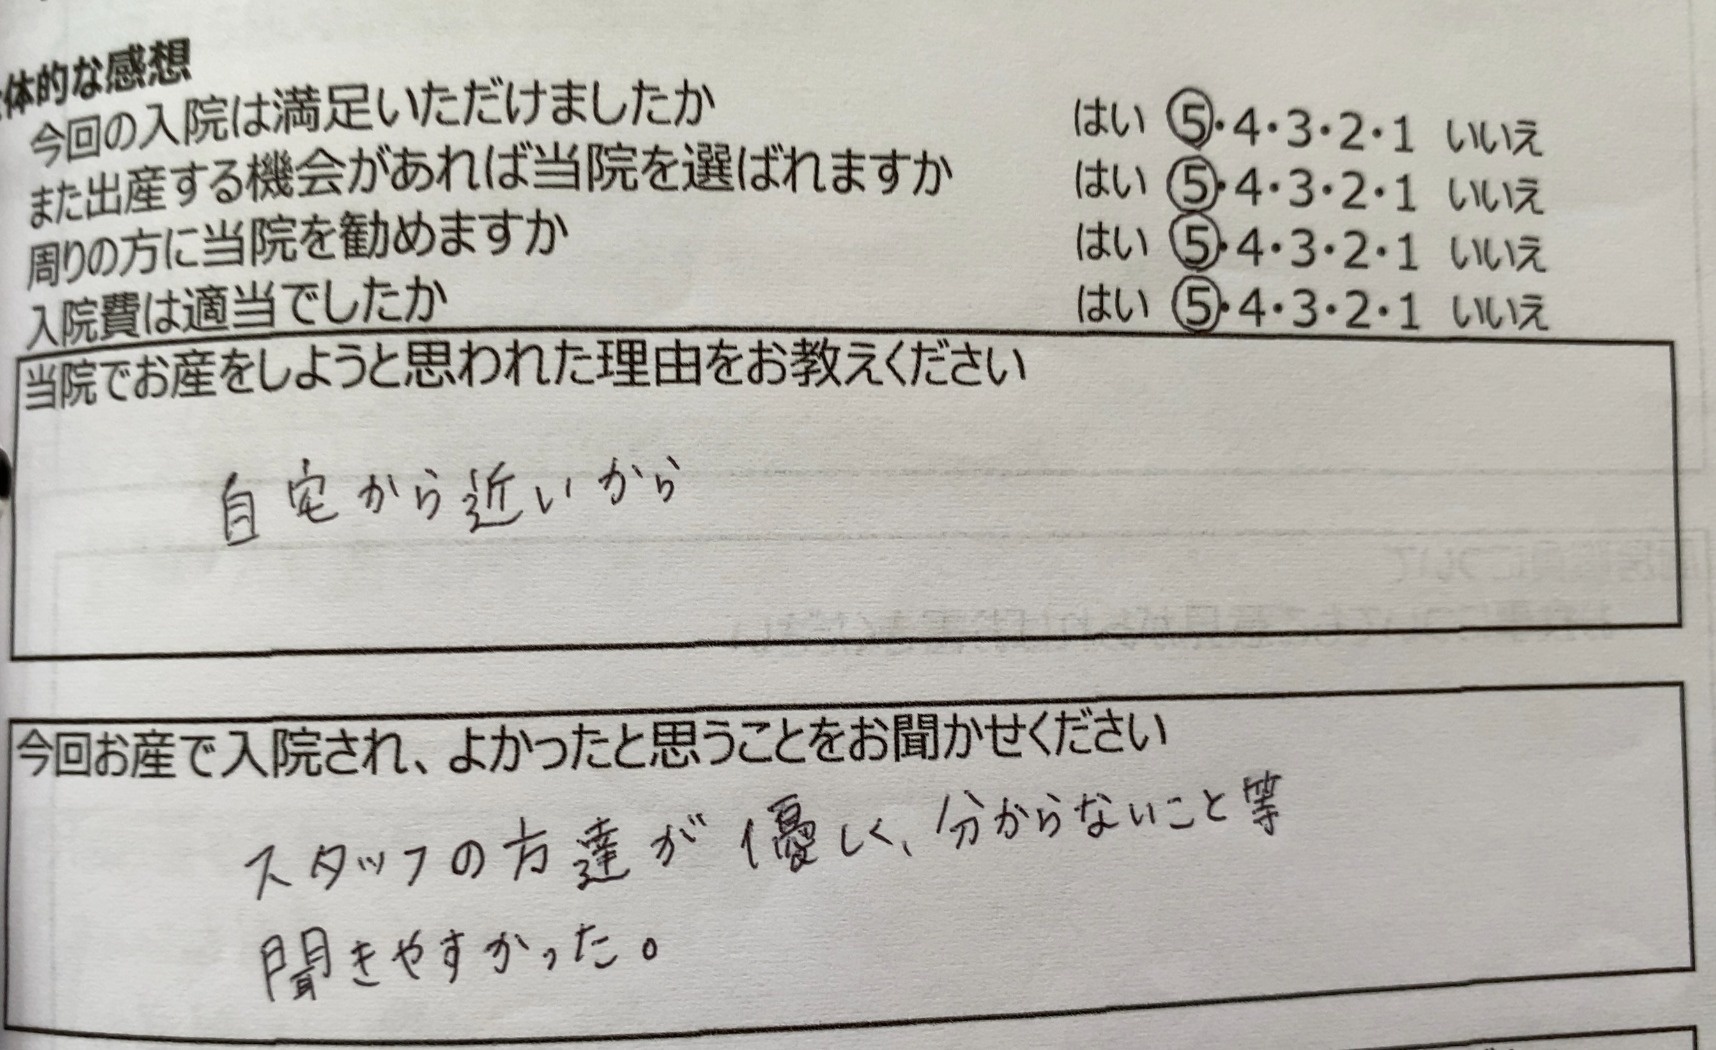 体的な感想
今回の入院は満足いただけましたか はい 5・4・3・2・1 いいえ
また出産する機会があれば当院を選ばれますか はい 5・4・3・2・1 いいえ
周りの方に当院を勧めますか はい 5・4・3・2・1 いいえ
入院費は適当でしたか はい 5・4・3・2・1 いいえ
当院でお産をしようと思われた理由をお教えください
自宅から近いから
今回お産で入院され、よかったと思うことをお聞かせください
スタッフの方達が優しく、分からないこと等
聞きやすかった。